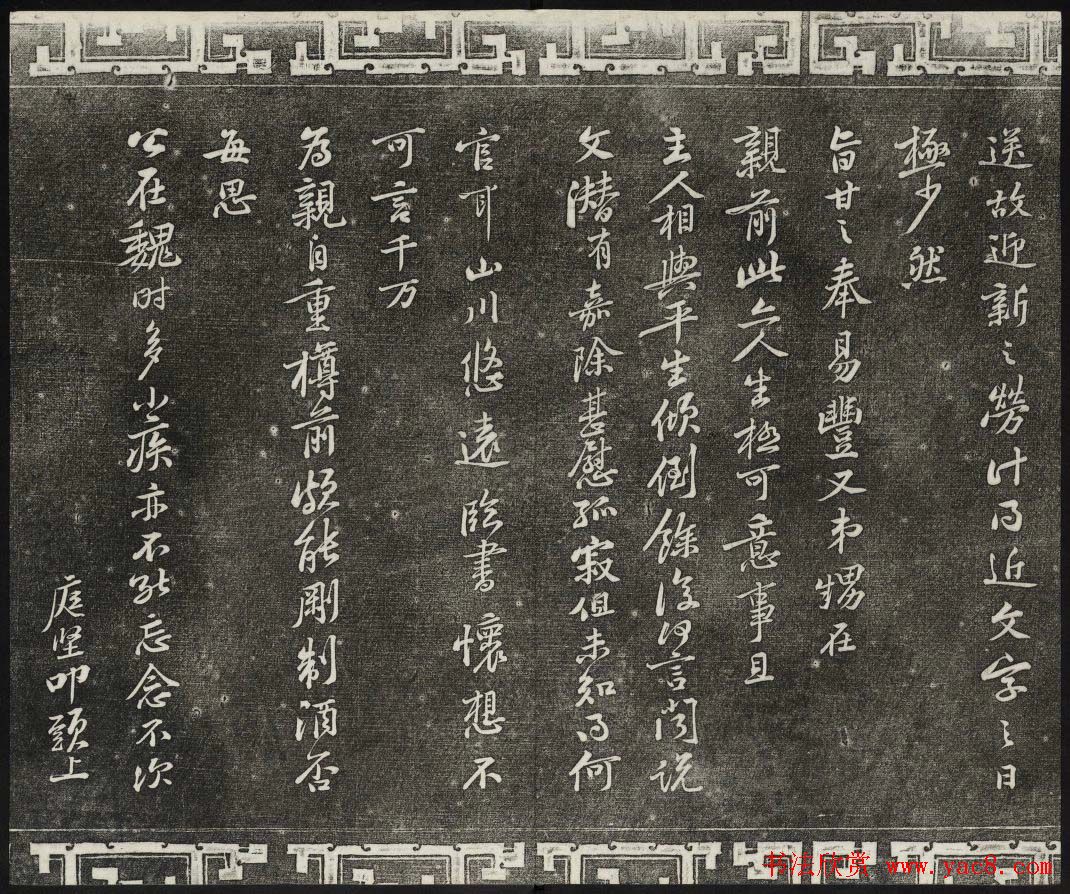 送故迎新之勞計得近文字之日
極少然
旨甘之奉易豐又弟甥在
親前此亦人生極可意事且
主人相與平生傾倒餘復何言閒説
文潛有嘉除甚慰孤寂但未知得何
官耳山川悠遠臨書懷想不
可言千万
為親自重樽前頗能剛制酒否
每思
公在魏时多小疾亦不能忘念不次
庭坚叩頭上
书法欣赏 www.yac8.com